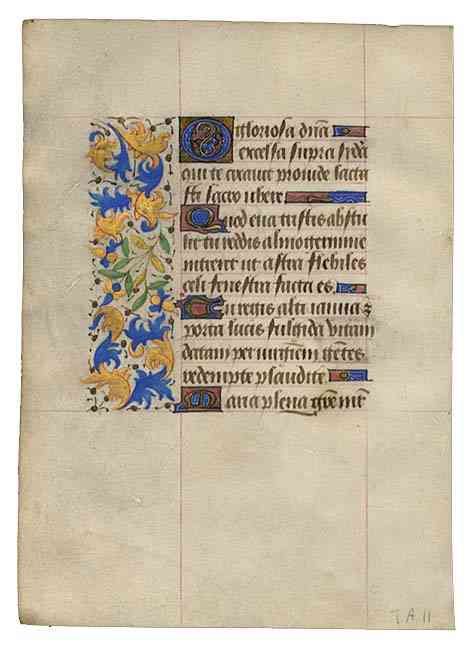 O gloriosa dn̄a
excelsa supra sid̄a
qui te creauit prouide lacta
sti sacro ubere
Quod eua tristis abstu
lit tu reddis almo germine
intrent ut astra flebiles
celi fenestra facta es.
Tu regis alti ianua ꝫ
porta lucis fulgida vitam
datam per uirginem gētes
redempte plaudite
Maria plena
T A 11